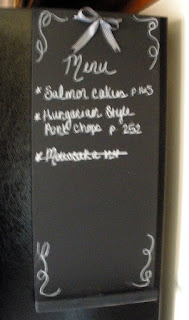 Menu
* Salmon cakes p 165
* Hungarian Style
Pork Chops p 252
*